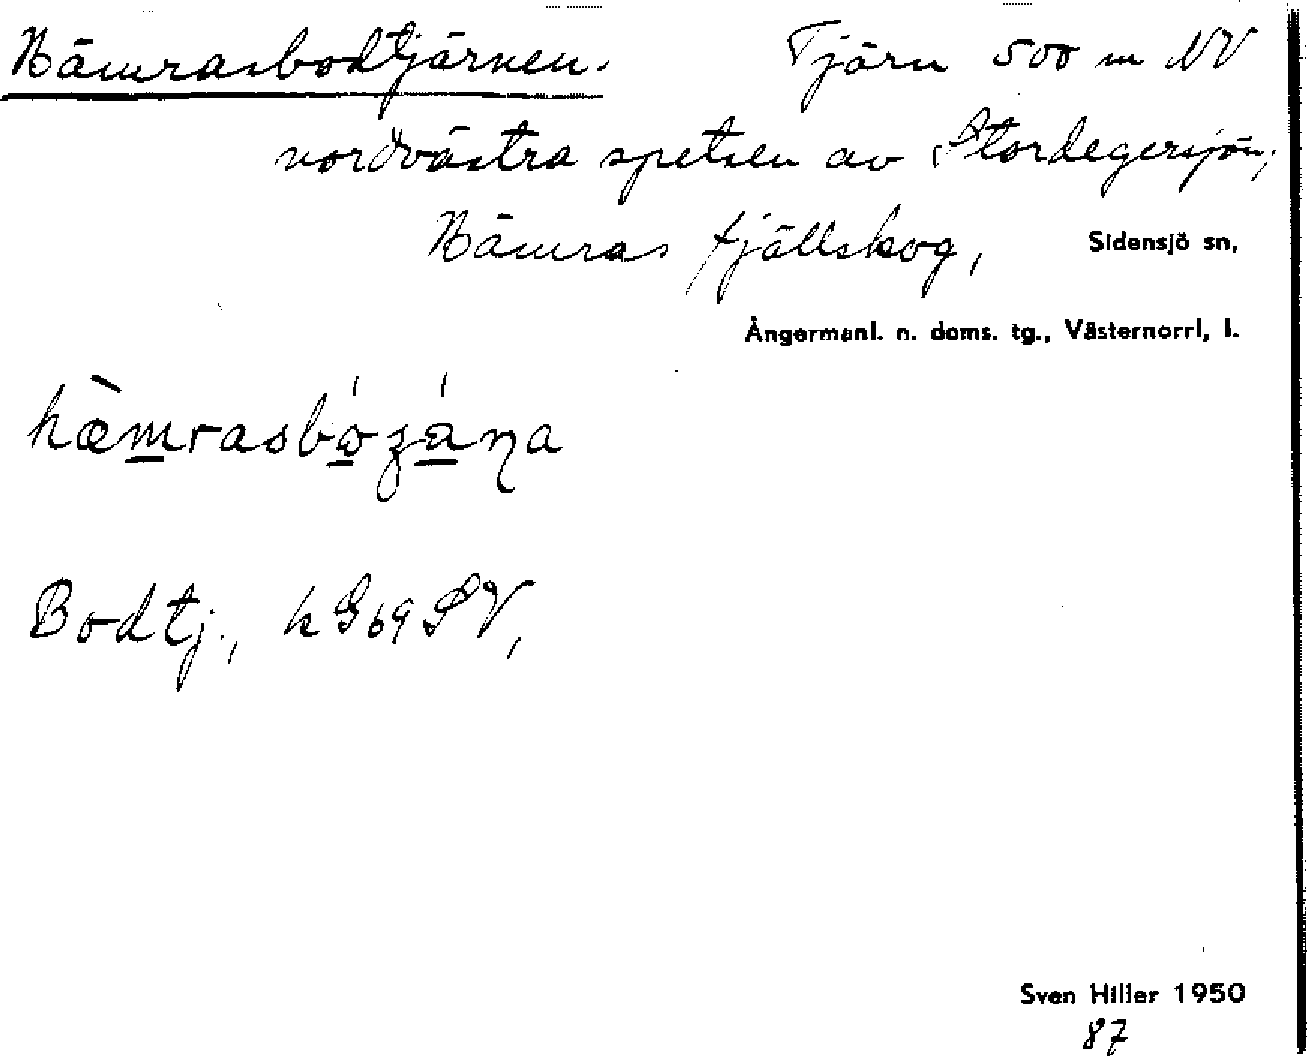 Hämrasbodtjärnen. Tjärn 500 m NV
nordvästra spetsen av Stordegersjön,
Hämras fjällskog, Sidensjö sn,
Ångermanl. n. doms. tg., Västernorrl, l.
hæ̀mrasbózána
Bodtj., kG69SV,
Sven Hiller 1950
87